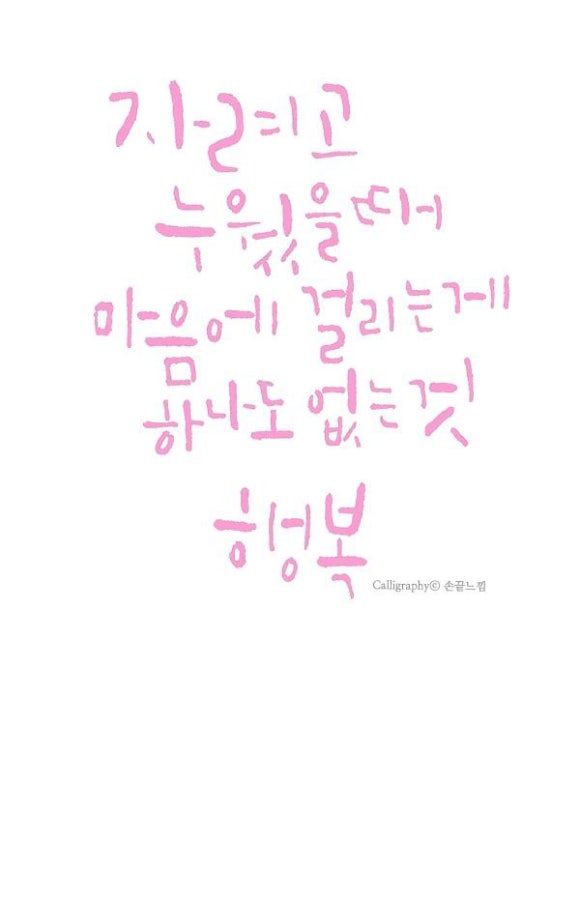 자려고
누웠을 때
마음에 걸리는게
하나도 없는것
행복
Calligraphyⓒ 손끝느낌